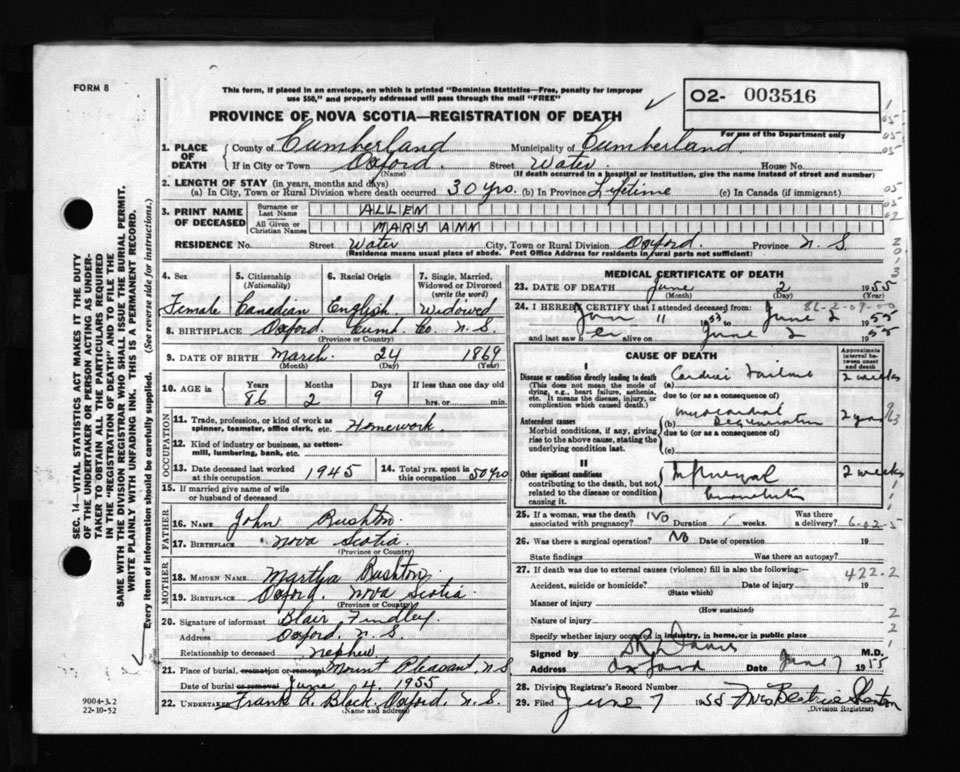 FORM 8
This form, if placed in an envelope, on which is printed "Dominion Statistics—Free, penalty for improper
use $50," and properly addressed will pass through the mail "FREE"
O2- 003516
For use of the Department only
PROVINCE OF NOVA SCOTIA—REGISTRATION OF DEATH
1. PLACE OF DEATH
County of Cumberland Municipality of Cumberland
If in City or Town Oxford. Street Water House No.
(Name) (If death occurred in a hospital or institution, give the name instead of street and number)
2. LENGTH OF STAY (in years, months and days)
(a) In City, Town or Rural Division where death occurred 30 yrs. (b) In Province Lifetime (c) In Canada (if immigrant)
3. PRINT NAME OF DECEASED
Surname or Last Name ALLEN
All Given or Christian Names MARY ANN
RESIDENCE No. Street Water City, Town or Rural Division Oxford. Province N.S.
(Residence means usual place of abode. Post Office Address for residents in rural parts not sufficient)
4. Sex Female
5. Citizenship (Nationality) Canadian
6. Racial Origin English
7. Single, Married, Widowed or Divorced (write the word) Widowed
8. BIRTHPLACE Oxford. Cumb. Co. N.S.
(Province or Country)
9. DATE OF BIRTH March 24 1869
(Month) (Day) (Year)
10. AGE in Years 86 Months 2 Days 9 If less than one day old hrs. or min.
OCCUPATION
11. Trade, profession, or kind of work as spinner, teamster, office clerk, etc. Homework.
12. Kind of industry or business, as cotton-mill, lumbering, bank, etc.
13. Date deceased last worked at this occupation 1945
14. Total yrs. spent in this occupation 50 yrs
15. If married give name of wife or husband of deceased
FATHER
16. NAME John Rushton.
17. BIRTHPLACE Nova Scotia
(Province or Country)
MOTHER
18. MAIDEN NAME Martha Rushton
19. BIRTHPLACE Oxford, Nova Scotia
(Province or Country)
20. Signature of informant Blair Findley.
Address Oxford, N.S.
Relationship to deceased nephew
21. Place of burial, cremation or removal Mount Pleasant, N.S
Date of burial or removal June 4, 1955
22. UNDERTAKER Frank A. Black. Oxford, N.S.
(Name and address)
MEDICAL CERTIFICATE OF DEATH
23. DATE OF DEATH June 2 1955
(Month) (Day) (Year)
24. I HEREBY CERTIFY that I attended deceased from:
Jan 11 1953 to June 2 1955
and last saw her alive on June 2 1955
CAUSE OF DEATH
Approximate interval between onset and death
I
Disease or condition directly leading to death
(This does not mean the mode of dying, e.g., heart failure, asthenia, etc. It means the disease, injury, or complication which caused death.)
(a) Cardiac Failure 2 weeks
due to (or as a consequence of)
Antecedent causes
Morbid conditions, if any, giving rise to the above cause, stating the underlying condition last.
(b) myocardial Degeneration 2 years
due to (or as a consequence of)
(c)
II
Other significant conditions
contributing to the death, but not related to the disease or condition causing it.
2 weeks
25. If a woman, was the death associated with pregnancy? No Duration weeks. Was there a delivery?
26. Was there a surgical operation? No Date of operation 19
State findings Was there an autopsy?
27. If death was due to external causes (violence) fill in also the following: 422.2
Accident, suicide or homicide? Date of injury 19
(State which)
Manner of injury
(How sustained)
Nature of injury
Specify whether injury occurred in industry, in home, or in public place
Signed by Davis M.D.
Address Oxford Date June 7 1955
28. Division Registrar's Record Number
29. Filed June 7 1955 Mrs Beatrice
(Division Registrar)
SEC. 14—VITAL STATISTICS ACT MAKES IT THE DUTY
OF THE UNDERTAKER OR PERSON ACTING AS UNDER-
TAKER TO OBTAIN ALL THE PARTICULARS REQUIRED
IN THE "REGISTRATION OF DEATH" AND TO FILE THE
SAME WITH THE DIVISION REGISTRAR WHO SHALL ISSUE THE BURIAL PERMIT.
WRITE PLAINLY WITH UNFADING INK. THIS IS A PERMANENT RECORD.
Every item of information should be carefully supplied. (See reverse side for instructions.)
9004-3.2
22-10-52